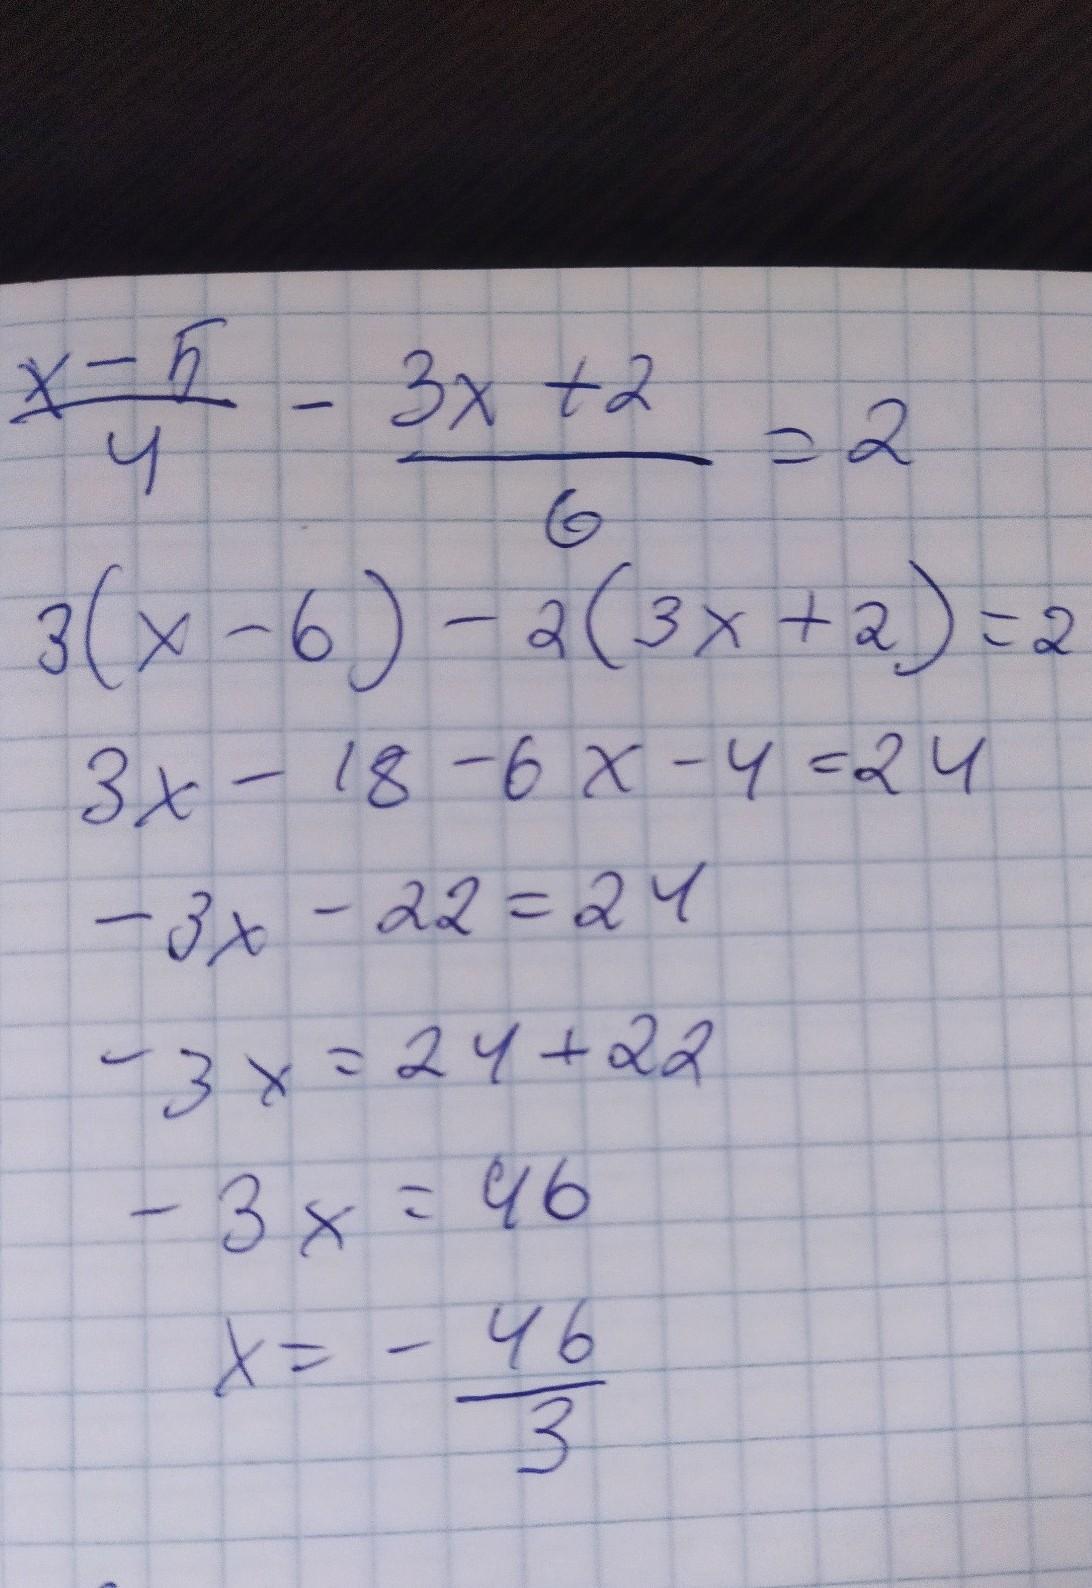 x-5/4 - 3x+2/6 = 2
3(x-6)-2(3x+2)=2
3x-18-6x-4=24
-3x-22=24
-3x=24+22
-3x=46
x=-46/3